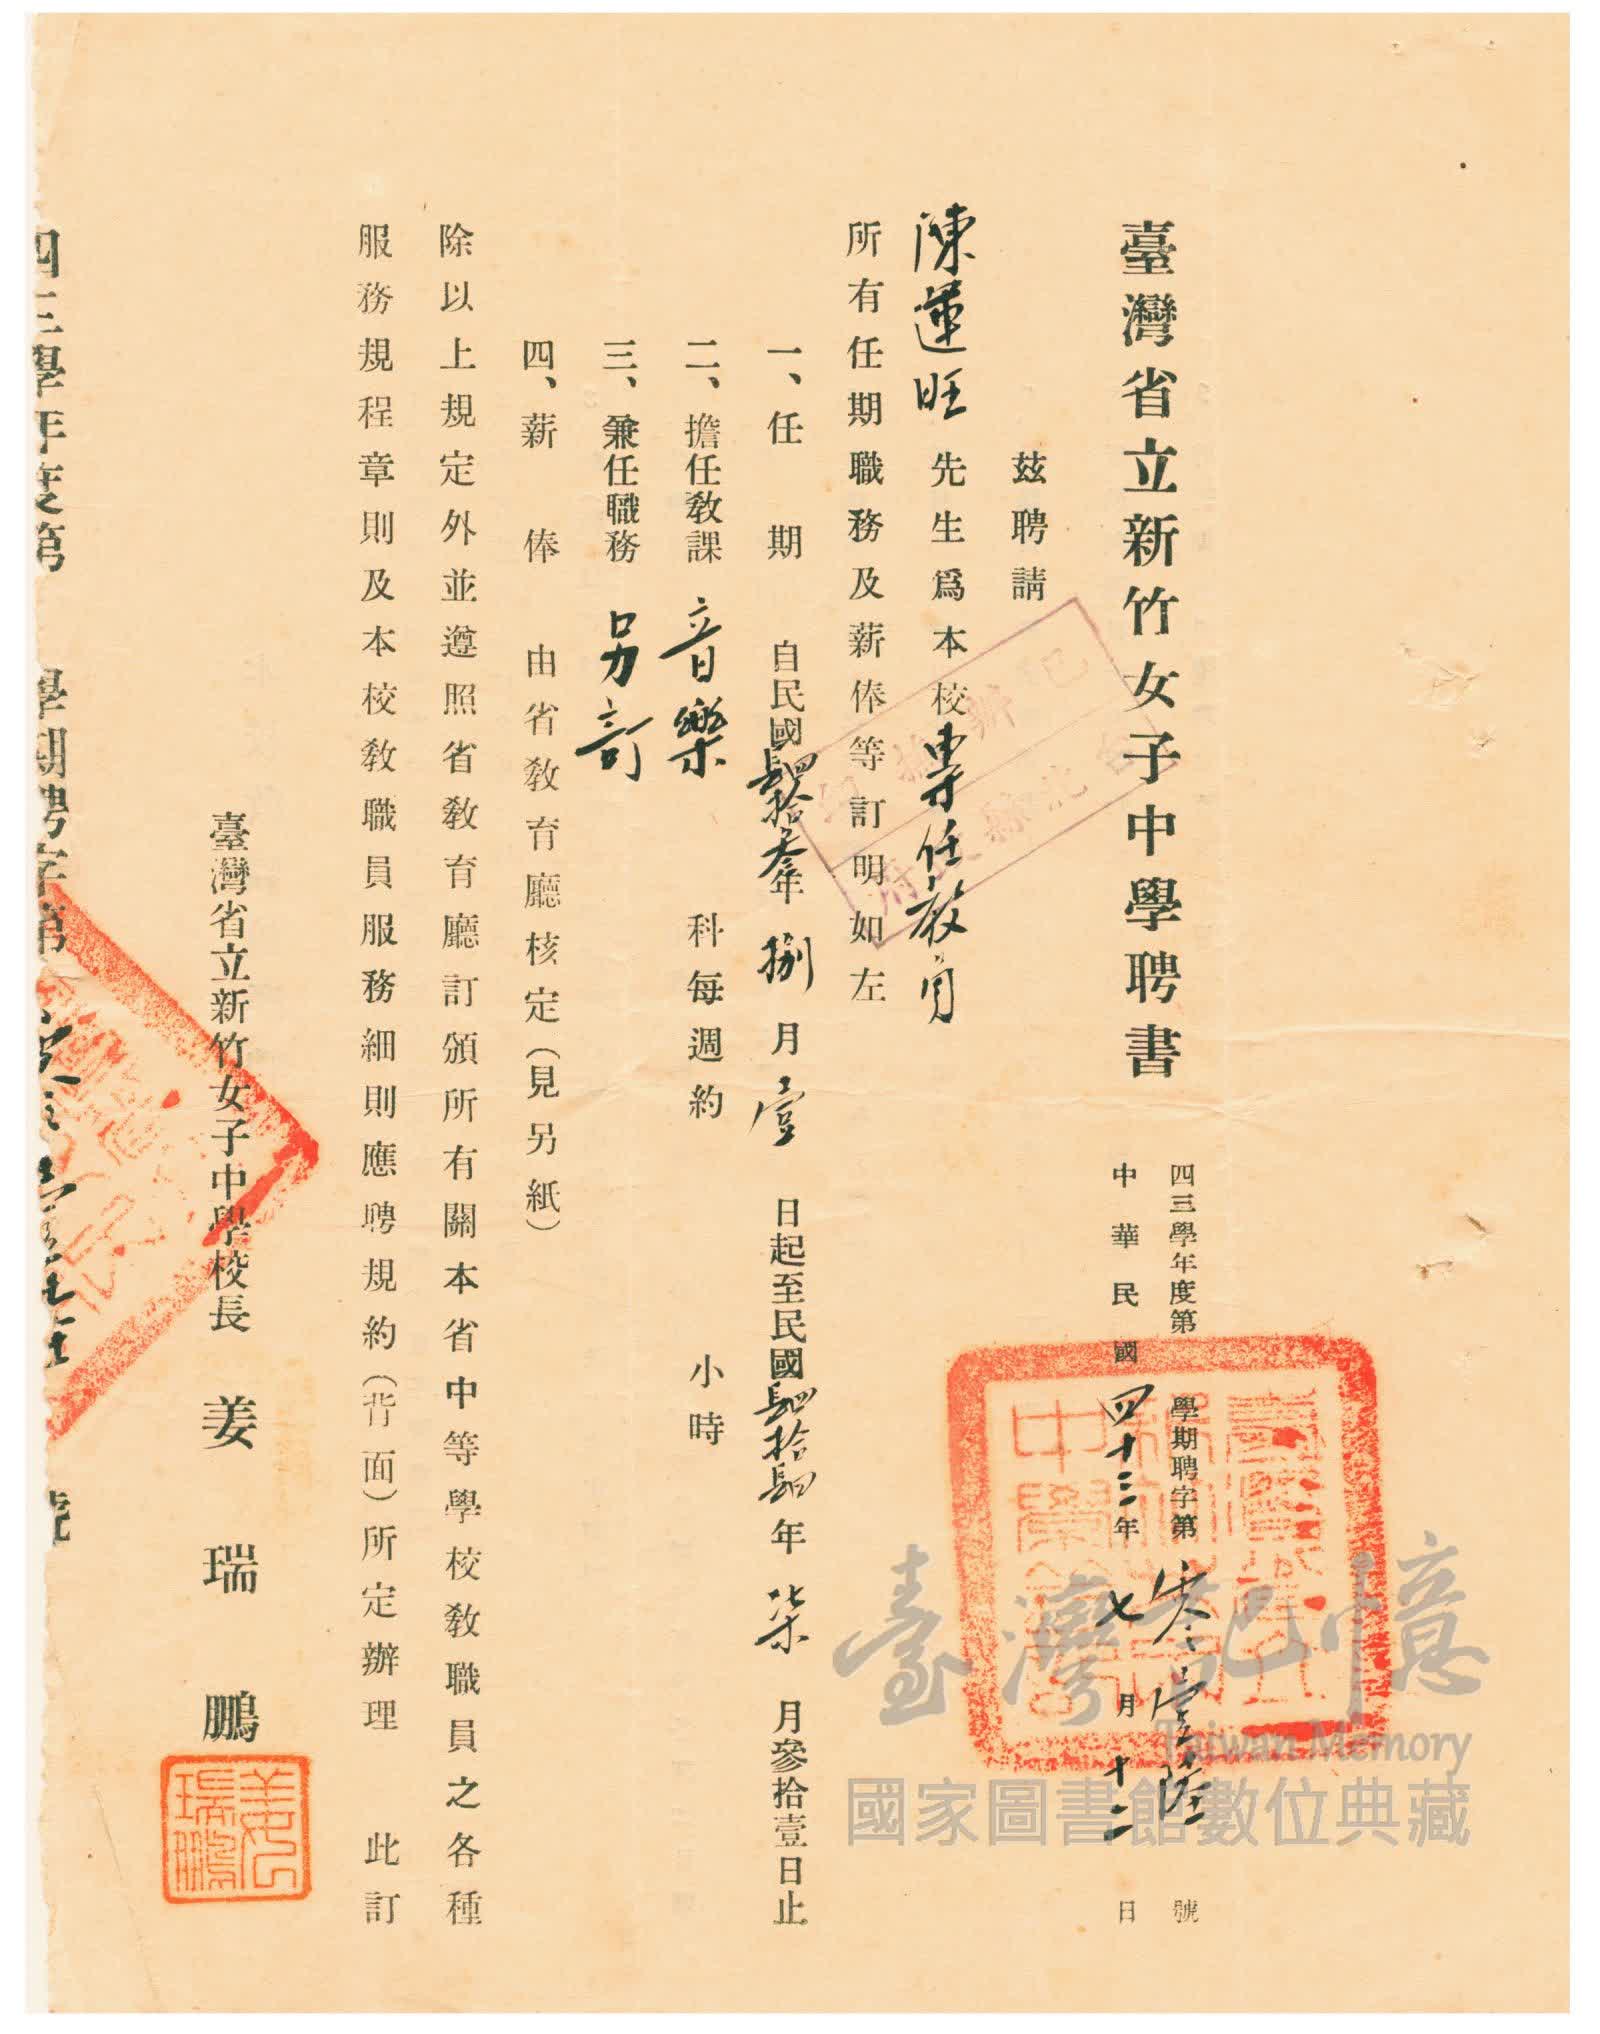 臺灣省立新竹女子中學聘書
四三學年度第 學期聘字第寒壹陸號
中華民國四十三年七月十二日
茲聘請
陳運旺先生爲本校專任教員
所有任期職務及薪俸等訂明如左
一、任期 自民國肆拾叁年捌月壹日起至民國肆拾肆年柒月參拾壹日止
二、擔任敎課 音樂 科每週約 小時
三、兼任職務 另訂
四、薪俸 由省敎育廳核定（見另紙）
除以上規定外並遵照省敎育廳訂頒所有關本省中等學校敎職員之各種
服務規程章則及本校敎職員服務細則應聘規約（背面）所定辦理 此訂
臺灣省立新竹女子中學校長 姜瑞鵬
姜瑞鵬
四三學年度第 學期聘字第 號
臺灣記憶
Taiwan Memory
國家圖書館數位典藏